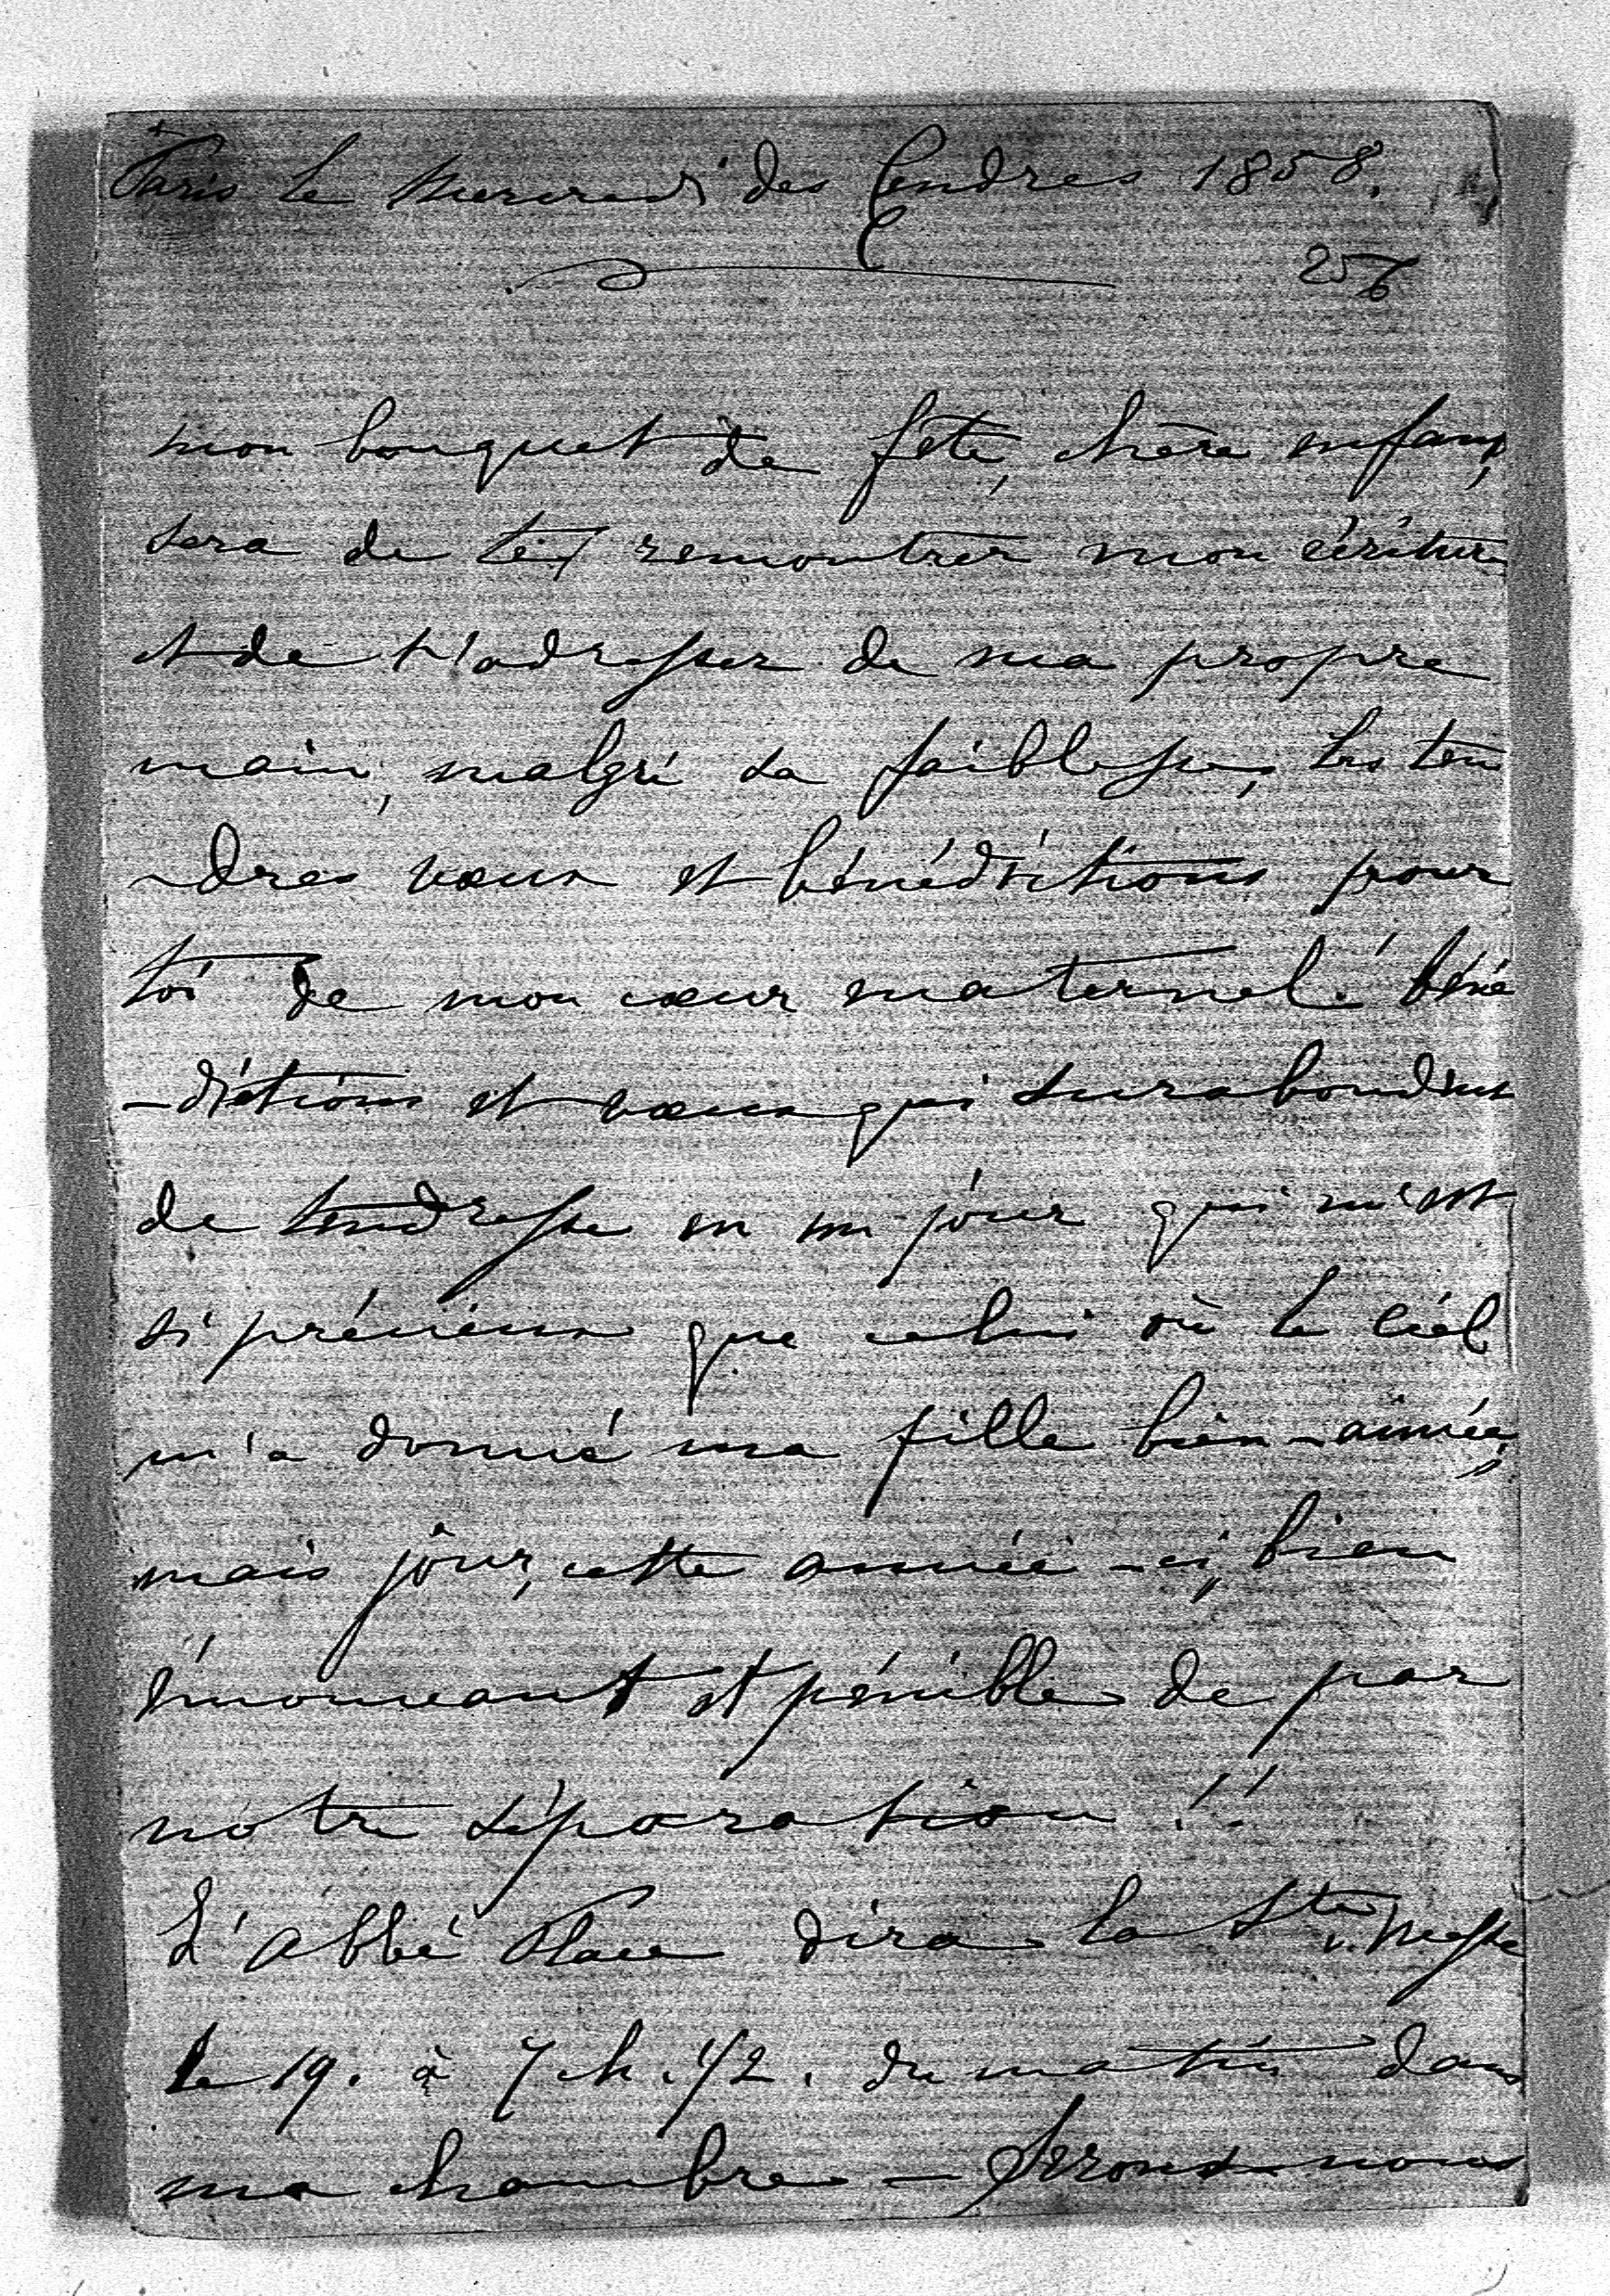 Paris le Mercredi des Cendres 1858.
256
mon bouquet de fête, chère enfant,
sera de te remontrer mon écriture
et de t'adresser de ma propre
main, malgré sa faiblesse, les ten
-dres vœux et bénédictions pour
toi de mon cœur maternel! béné
-dictions et vœux qui surabondent
de tendresse en un jour qui m'est
si précieux que celui où le Ciel
m'a donné ma fille bien-aimée,
mais jour, cette année-ci, bien
émouvant et pénible de par
notre séparation!!
L'abbé Place dira la Ste Messe
le 19. à 7 h. 1/2. du matin dans
ma chambre - Serrons-nous